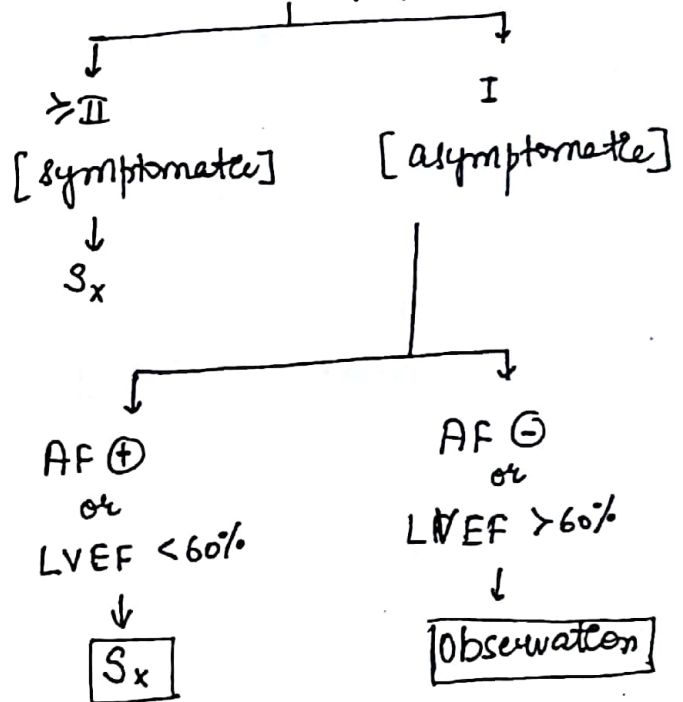 ≥II
[symptomatic]
↓
Sx
I
[asymptomatic]
AF ⊕
or
LVEF <60%
↓
Sx
AF ⊖
or
LVEF >60%
↓
Observation